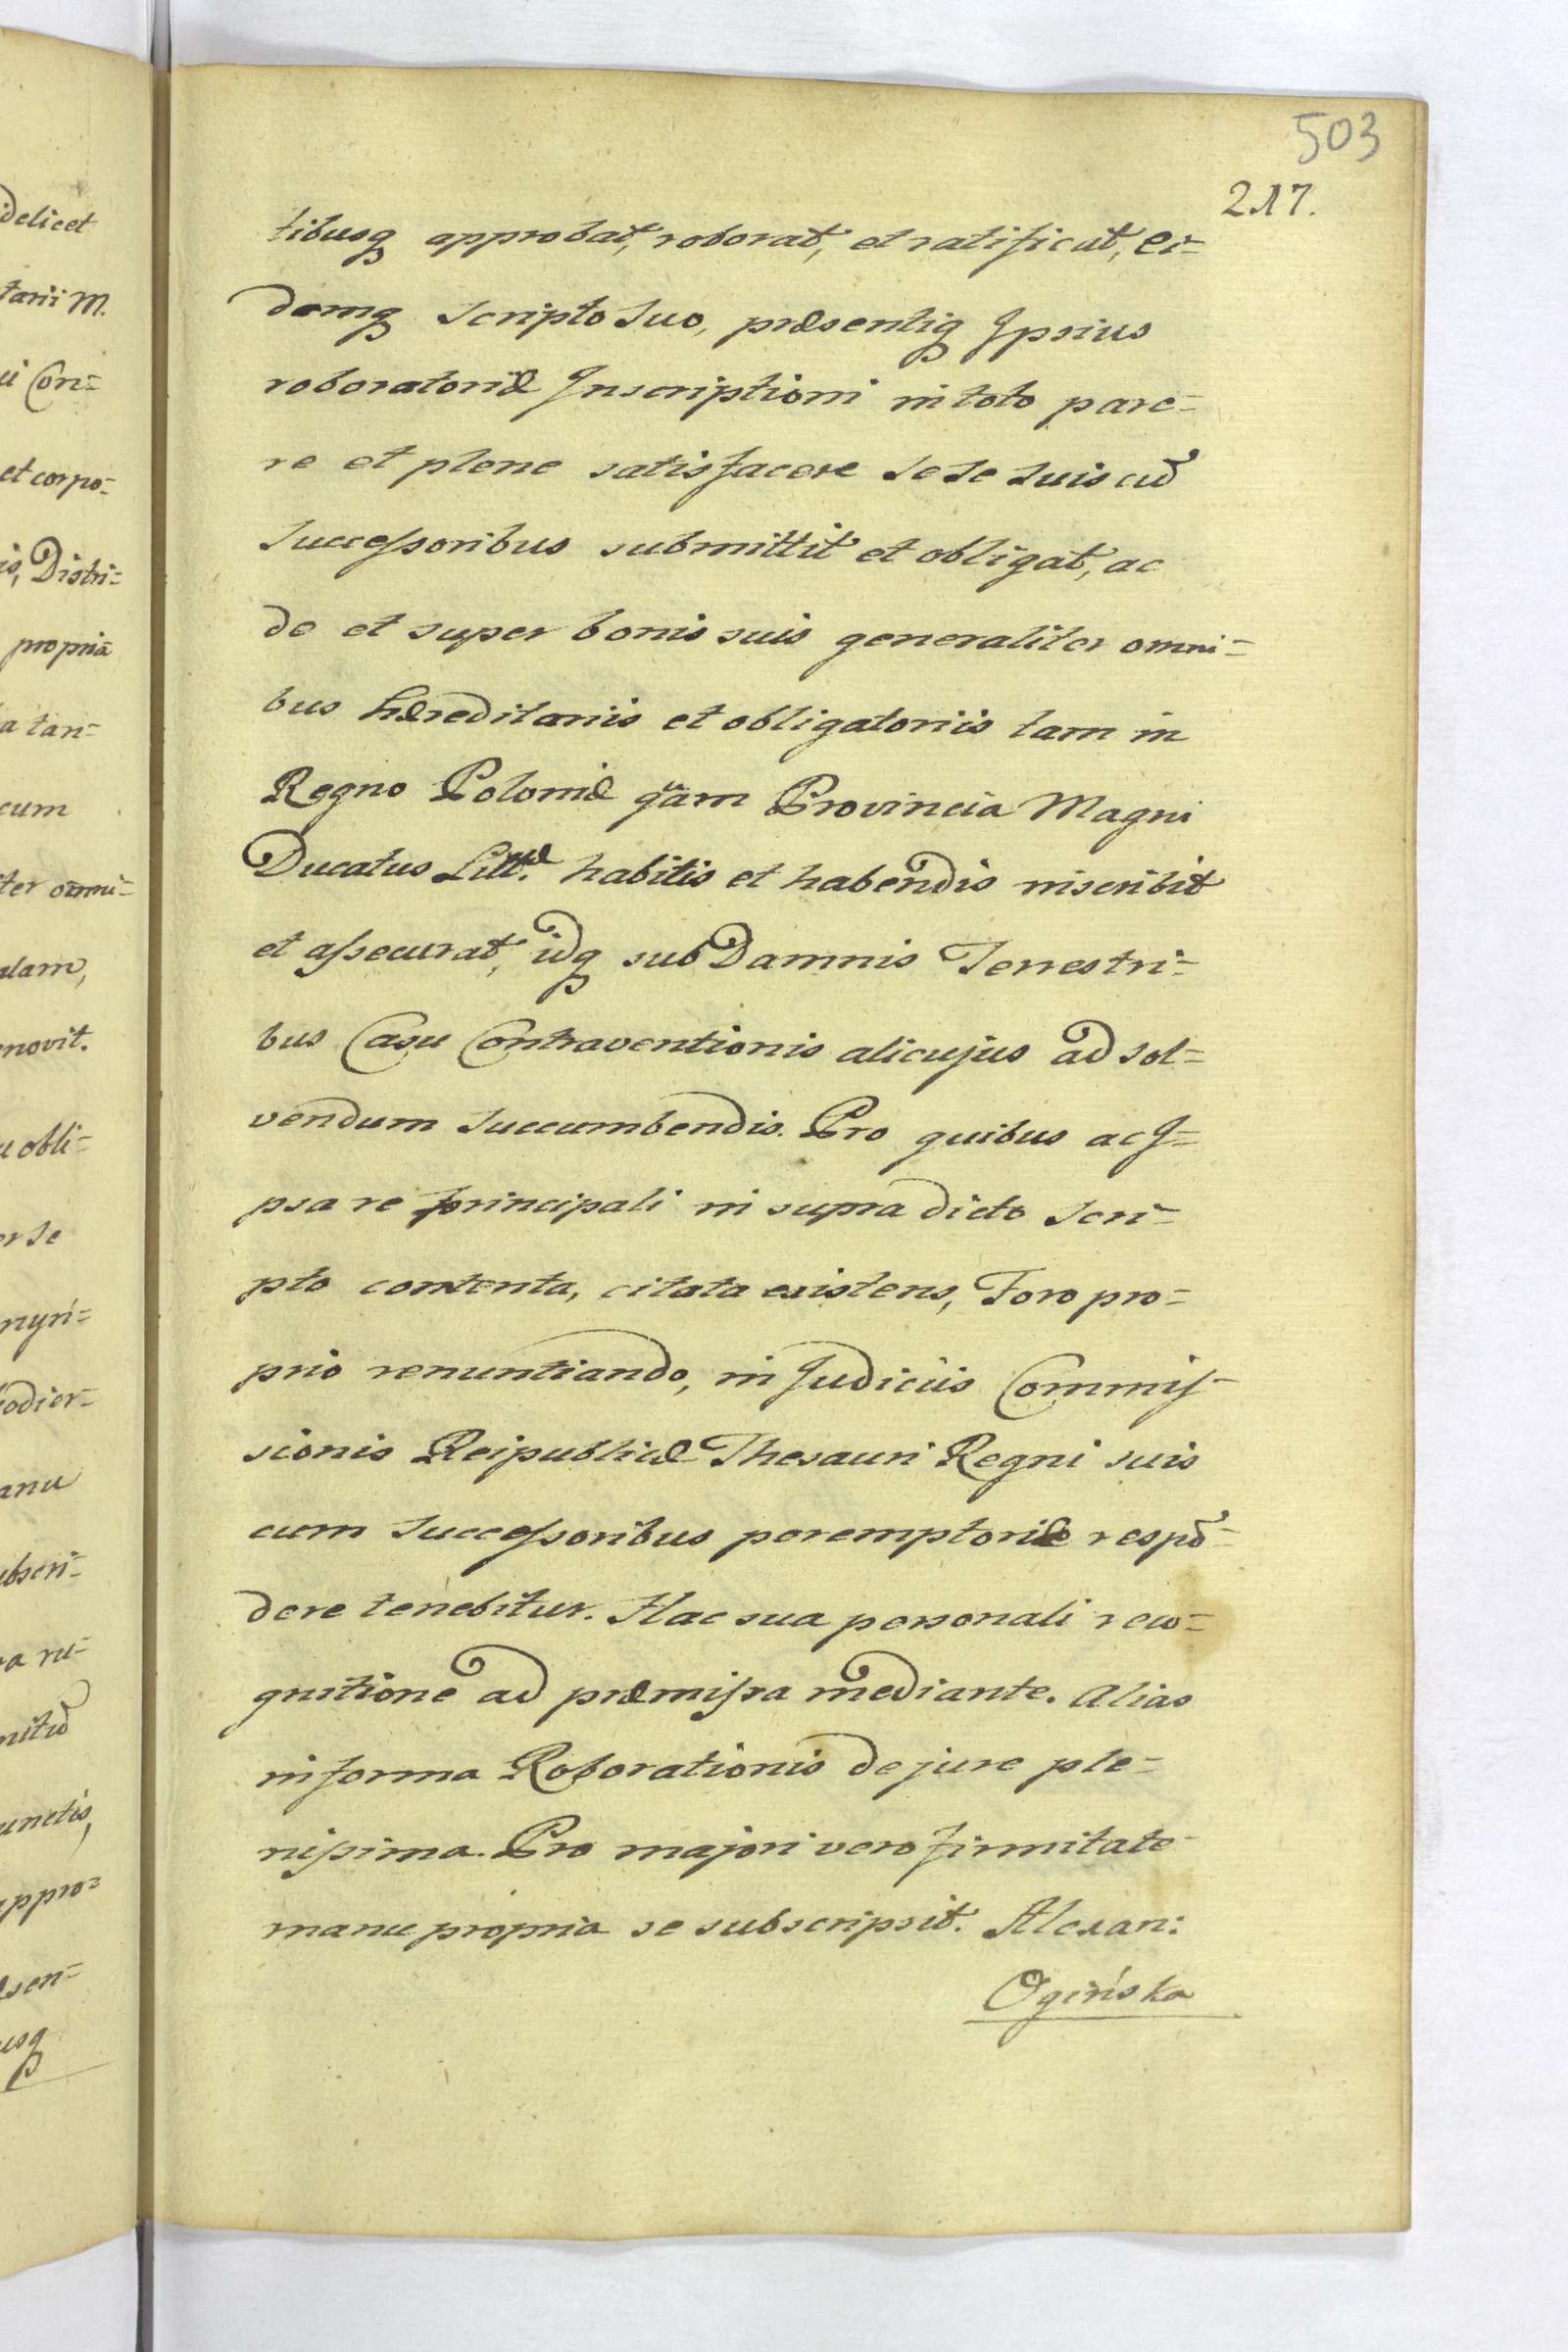 503
217.
tibusq approbat, roborat, et ratificat, ei-
demq scripto suo, præsentiq Ipsius
roboratoriæ Inscriptioni in toto pare-
re et plene satisfacere se se suis cū
successoribus submittit et obligat, ac
de et super bonis suis generaliter omni-
bus hæreditariis et obligatoriis tam in
Regno Poloniæ quam Provincia Magni
Ducatus Litt. habitis et habendis inscribit
et assecurat, idq sub Damnis Terrestri-
bus Casu Contraventionis alicujus ad sol-
vendum succumbendis. Pro quibus ac I-
psa re principali in supra dicto scri-
pto contenta, citata existens, Foro pro-
prio renuntiando, in Judiciis Commis-
sionis Reipublicæ Thesauri Regni suis
cum successoribus peremptorie respō-
dere tenebitur. Hac sua personali reco-
gnitione ad præmissa mediante. Alias
in forma Roborationis de jure ple-
nissima. Pro majori vero firmitate
manu propria se subscripsit. Alexan:
Ogińska
idelicet
tarii M.
ui Con-
et corpo-
is, Distri-
propriā
a tan-
cum
iter omni-
ulam,
novit.
u obli-
er se
myri-
hodier-
anu
ubscri-
a ru-
nitū
unctis,
appro-
sen-
usq